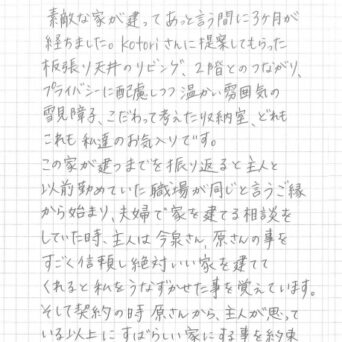 素敵な家が建ってあっと言う間に3ヶ月が
経ちました。kotoriさんに提案してもらった
板張り天井のリビング、2階とのつながり、
プライバシーに配慮しつつ温かい雰囲気の
雪見障子、こだわって考えた収納室、どれも
これも私達のお気入りです。
この家が建つまでを振り返ると主人と
以前勤めていた職場が同じと言うご縁
から始まり、夫婦で家を建てる相談を
していた時、主人は今泉さん、原さんの事を
すごく信頼し絶対いい家を建てて
くれると私をうなずかせた事を覚えています。
そして契約の時原さんから、主人が思って
いる以上にすばらしい家にする事を約束